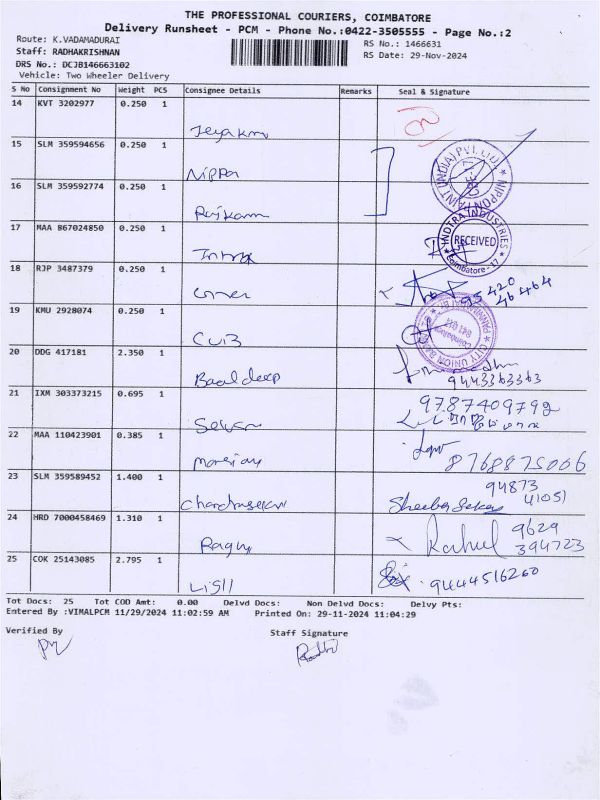 THE PROFESSIONAL COURIERS, COIMBATORE
Delivery Runsheet - PCM - Phone No.:0422-3505555 - Page No.:2
Route: K.VADAMADURAI
RS No.: 1466631
Staff: RADHAKRISHNAN
RS Date: 29-Nov-2024
DRS No.: DCJB146663102
Vehicle: Two Wheeler Delivery
S No Consignment No Weight PCS Consignee Details Remarks Seal & Signature
14 KVT 3202977 0.250 1
15 SLM 359594656 0.250 1
Nippon
16 SLM 359592774 0.250 1
Rajkam
17 MAA 867024850 0.250 1
INDIRA INDUSTRIES RECEIVED Coimbatore - 17
18 RJP 3487379 0.250 1
95420
46464
19 KMU 2928074 0.250 1
CUB
CITY UNION
20 DDG 417181 2.350 1
Baaldeep
9443363363
21 IXM 303373215 0.695 1
Selvan
9787409792
22 MAA 110423901 0.385 1
8768875006
23 SLM 359589452 1.400 1
Chandrasekar
Sheeba Sekar 94873
41051
24 HRD 7000458469 1.310 1
Raghu
Rahul 9629
394723
25 COK 25143085 2.795 1
9444516260
Tot Docs: 25 Tot COD Amt: 0.00 Delvd Docs: Non Delvd Docs: Delvy Pts:
Entered By :VIMALPCM 11/29/2024 11:02:59 AM Printed On: 29-11-2024 11:04:29
Verified By
Staff Signature